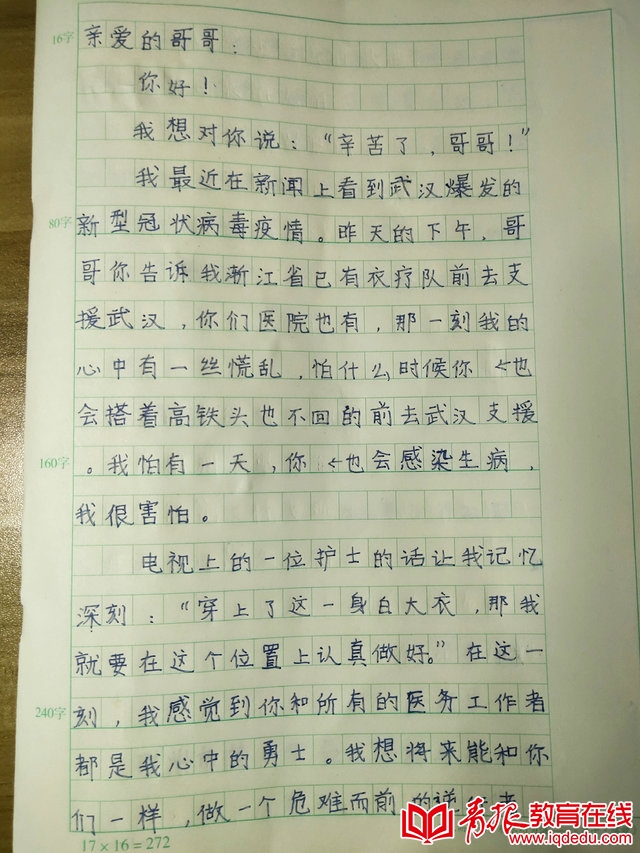 16字
亲爱的哥哥：
你好！
我想对你说："辛苦了，哥哥！"
我最近在新闻上看到武汉爆发的
80字
新型冠状病毒疫情。昨天的下午，哥
哥你告诉我浙江省已有衣疗队前去支
援武汉，你们医院也有，那一刻我的
心中有一丝慌乱，怕什么时候你也
会搭着高铁头也不回的前去武汉支援
160字
。我怕有一天，你也会感染生病，
我很害怕。
电视上的一位护士的话让我记忆
深刻："穿上了这一身白大衣，那我
就要在这个位置上认真做好。"在这一
240字
刻，我感觉到你和所有的医务工作者
都是我心中的勇士。我想将来能和你
们一样，做一个危难而前的逆行者
17×16=272
青报教育在线
www.iqdedu.com